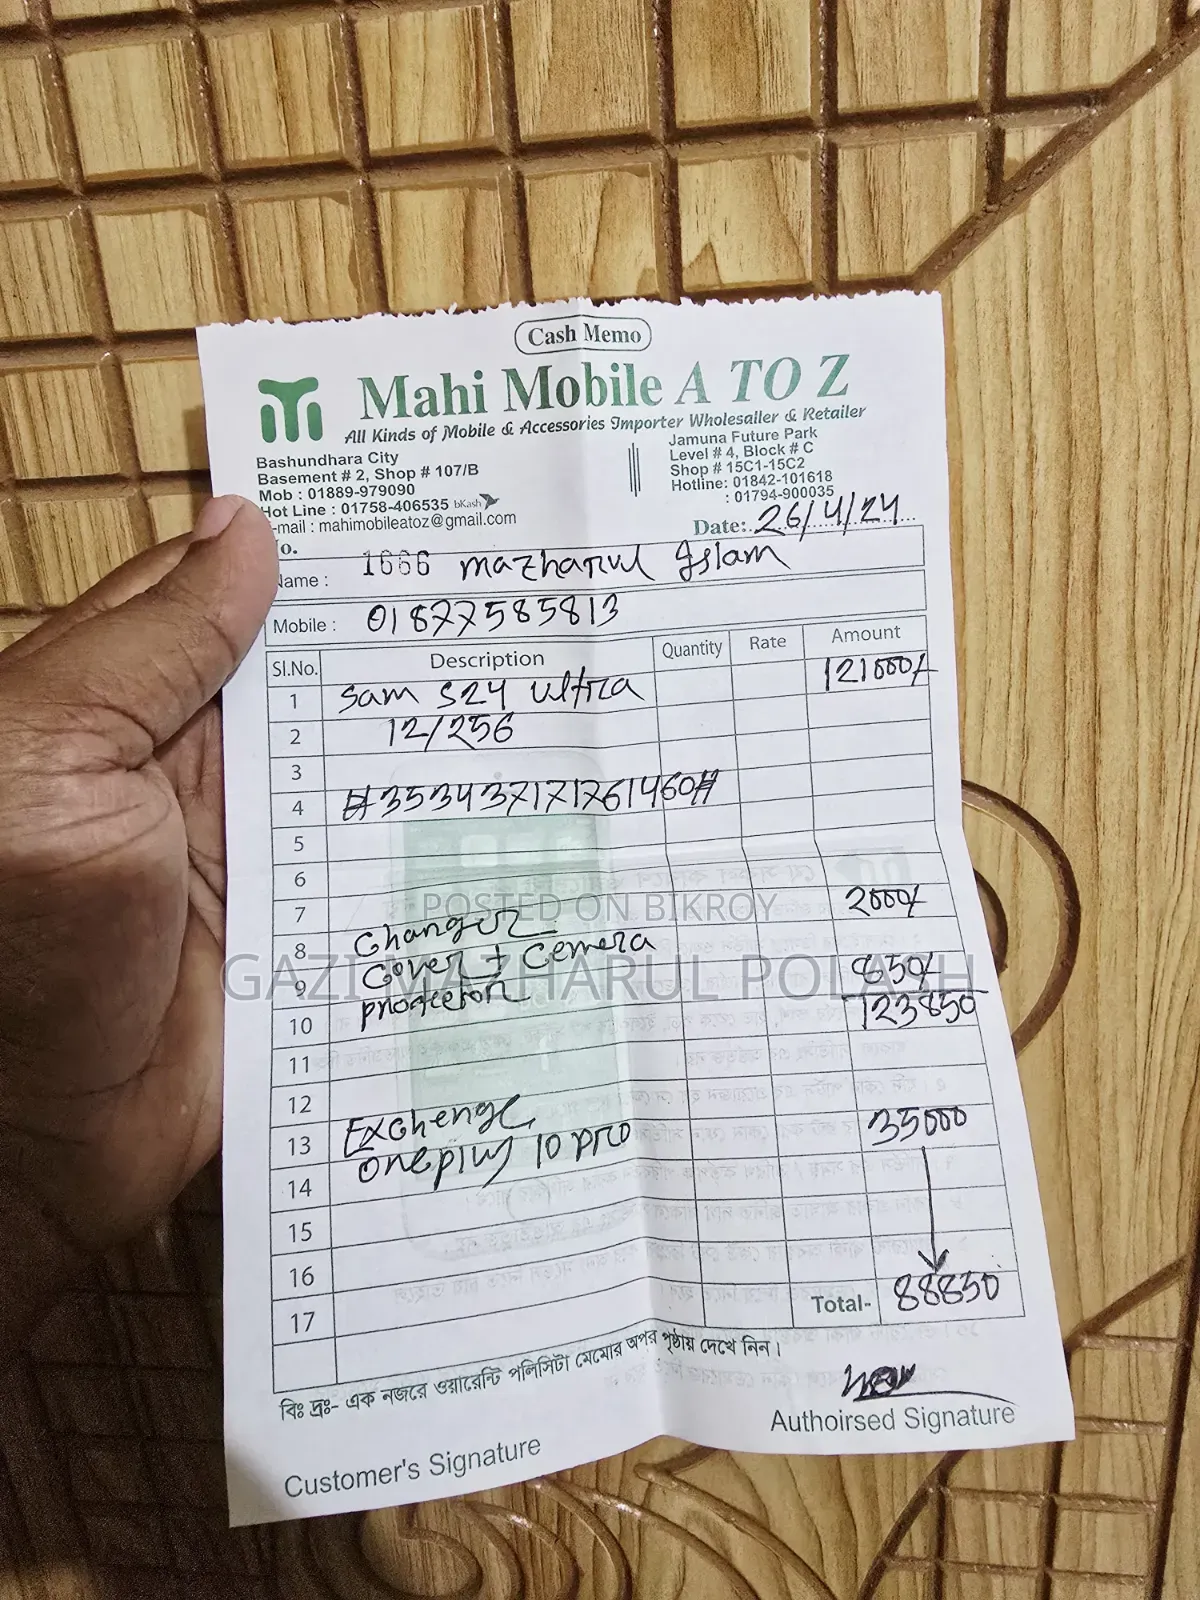 Cash Memo
Mahi Mobile A TO Z
All Kinds of Mobile & Accessories Importer Wholesaller & Retailer
Bashundhara City
Basement # 2, Shop # 107/B
Mob : 01889-979090
Hot Line : 01758-406535 bKash
-mail : mahimobileatoz@gmail.com
Jamuna Future Park
Level # 4, Block # C
Shop # 15C1-15C2
Hotline: 01842-101618
: 01794-900035
Date: 26/4/24
o.
Name : 1666 Mazharul Islam
Mobile : 01877585813
Sl.No. Description Quantity Rate Amount
1 Sam S24 Ultra 121000/-
2 12/256
3
4 #353437171761460#
5
6
7 2000/-
8 Changer
9 Cover + Cemera 850/-
10 protector 123850
11
12
13 Exchenge 35000
14 Oneplus 10 pro
15
16
17 Total- 88850
বিঃ দ্রঃ- এক নজরে ওয়ারেন্টি পলিসিটা মেমোর অপর পৃষ্ঠায় দেখে নিন।
Customer's Signature
Authoirsed Signature
POSTED ON BIKROY
GAZI MAZHARUL POLASH